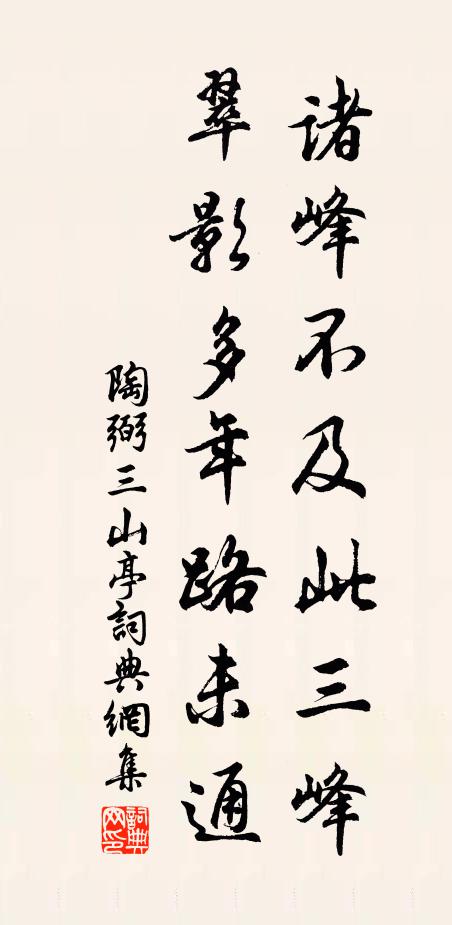 諸峰不及此三峰
翠影多年路未通
陶弼三山亭詞典網集
詞典网印